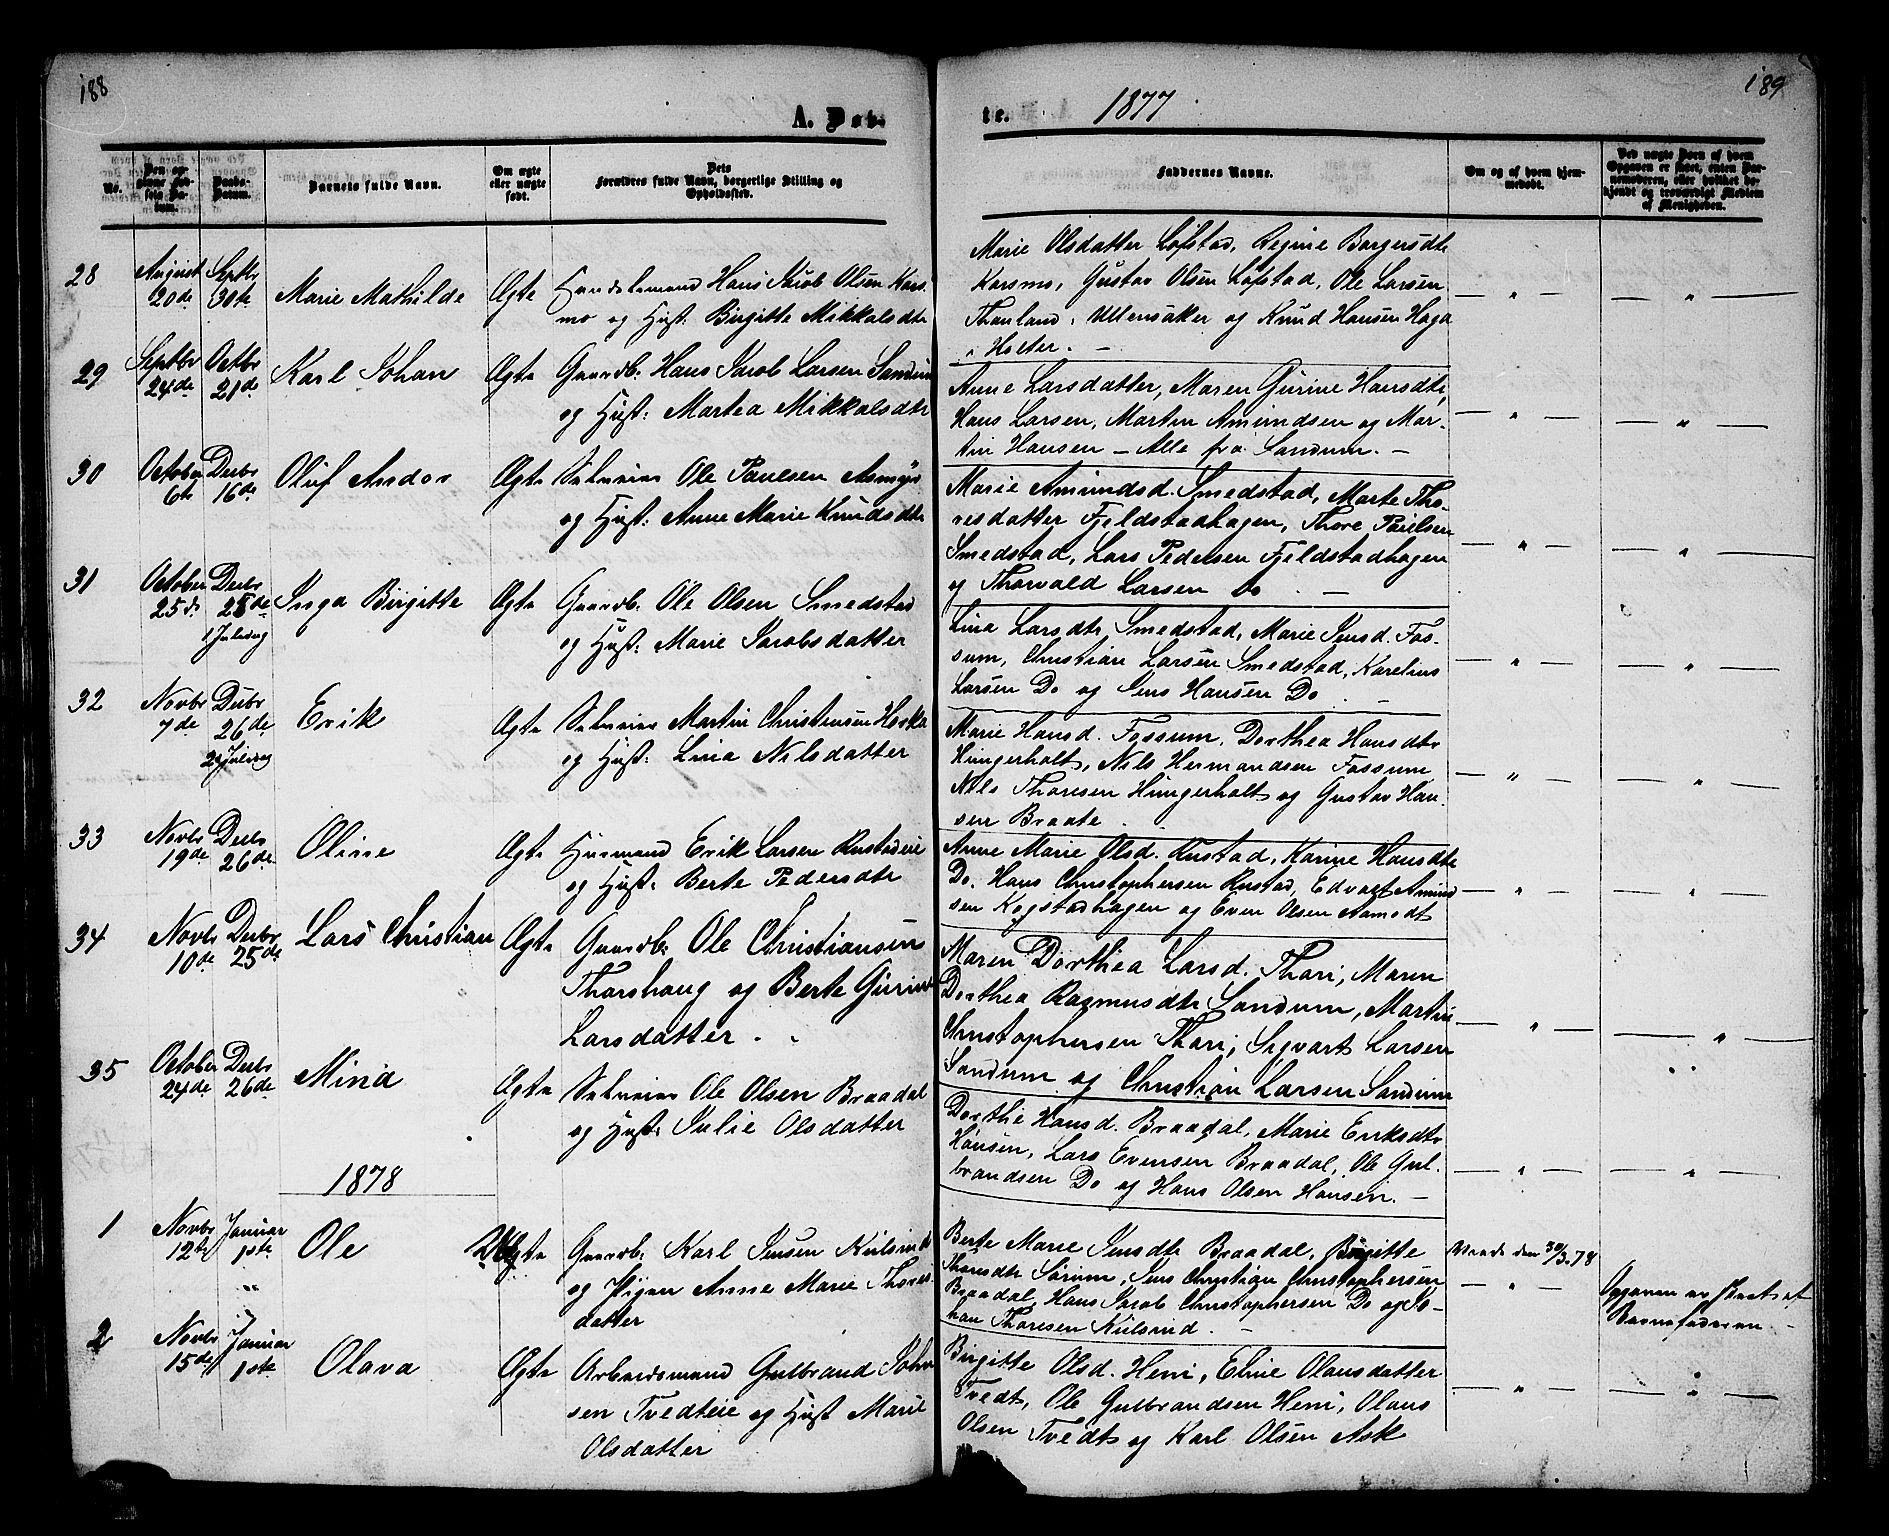 188
A. Døb-
No.
Den op-
givne Fød-
sels Da-
tum.
Daabs-
Datum.
Barnets fulde Navn.
Om ægte
eller uægte
født.
Dets
Forældres fulde Navn, borgerlige Stilling og
Opholdssted.
28
August
20de
Septbr
30te
Marie Mathilde
Ægte
Handelsmand Hans Jacob Olsen Kors-
mo og Hust: Birgitte Mikkelsdtr
29
Septbr
24de
Octbr
21de
Karl Johan
Ægte
Gaardb: Hans Jacob Larsen Sandum
og Hust: Martea Mikkelsdtr
30
October
6te
Decbr
16de
Oluf Andor
Ægte
Selveier Ole Paulsen Asmyr
og Hust: Anne Marie Knudsdtr
31
October
25de
Decbr
25de
1 Juledag
Inga Birgitte
Ægte
Gaardb: Ole Olsen Smedstad
og Hust: Marie Jacobsdatter
32
Novbr
7de
Decbr
26de
2 Juledag
Erik
Ægte
Selveier Martin Christensen
og Hust: Lina Nilsdatter
33
Novbr
19de
Decbr
26de
Oline
Ægte
Husmand Erik Larsen Rustadeie
og Hust: Berte Pedersdtr
34
Novbr
10de
Decbr
25de
Lars Christian
Ægte
Gaardb: Ole Christiansen
Thorshaug og Berte Gurine
Larsdatter.
35
October
24de
Decbr
26de
Mina
Ægte
Selveier Ole Olsen Braadal
og Hust: Julie Olsdatter
1878
1
Novbr
12te
Januar
1ste
Ole
Uægte
Gaardb: Karl Jensen Kulsrud
og Pigen Anne Marie Thores-
datter
2
Novbr
15de
Januar
1ste
Olava
Ægte
Arbeidsmand Gulbrand Johan-
sen Tvedteie og Hust Marie
Olsdatter
189
te. 1877
Faddernes Navne.
Om og af hvem hjem-
medøbt.
Ved uægte Børn af hvem
Opgaven er skeet, enten Bar-
nemoderen, eller hvilket be-
kjendt og troværdigt Medlem
af Menigheden.
Marie Olsdatter Løfstad, Regine Borgersdtr
Korsmo, Gustav Olsen Løfstad, Ole Larsen
Thonland, Ullensaker og Knud Hansen Haga
i Holter. —
— " —
— " —
Anne Larsdatter, Maren Gurine Hansdtr,
Hans Larsen, Martin Amundsen og Mar-
tin Hansen — Alle fra Sandum. —
— " —
— " —
Marie Amundsd. Smedstad, Marte Tho-
resdatter Fjeldstadhagen, Thore Paulsen
Smedstad, Lars Pedersen Fjeldstadhagen
og Thorvald Larsen Do. —
— " —
— " —
Lina Larsdtr Smedstad, Marie Jensd. Fos-
sum, Christian Larsen Smedstad, Karelius
Larsen Do og Jens Hansen Do —
— " —
— " —
Marie Hansd. Fossum, Dorthea Hansdtr
Hungerholt, Nils Hermandsen Fossum,
Nils Thoresen Hungerholt og Gustav Han-
sen Braate.
— " —
— " —
Anne Marie Olsd. Rustad, Karine Hansdtr
Do, Hans Christophersen Rustad, Edvart Amund
sen Kogstadhagen og Even Olsen Aamodt
— " —
— " —
Maren Dorthea Larsd. Thori, Maren
Dorthea Rasmusdtr Sandum, Martin
Christophersen Thori, Sigvart Larsen
Sandum og Christian Larsen Sandum
— " —
— " —
Dorthe Hansd. Braadal, Marie Eriksdtr
Hansen, Lars Evensen Braadal, Ole Gul-
brandsen Do og Hans Olsen Hansen. —
— " —
— " —
Berte Marie Jensdtr Braadal, Birgitte
Thoresdtr Sørum, Jens Christian Christophersen
Braadal, Hans Jacob Christophersen Do og Jo-
han Thoresen Kulsrud. —
den 30/3.78
— " —
Opgaven er skeet af
Barnefaderen —
Birgitte Olsd. Heni, Eline Olausdatter
Tvedt, Ole Gulbrandsen Heni, Olaus
Olsen Tvedt og Karl Olsen Ask
— " —
— " —